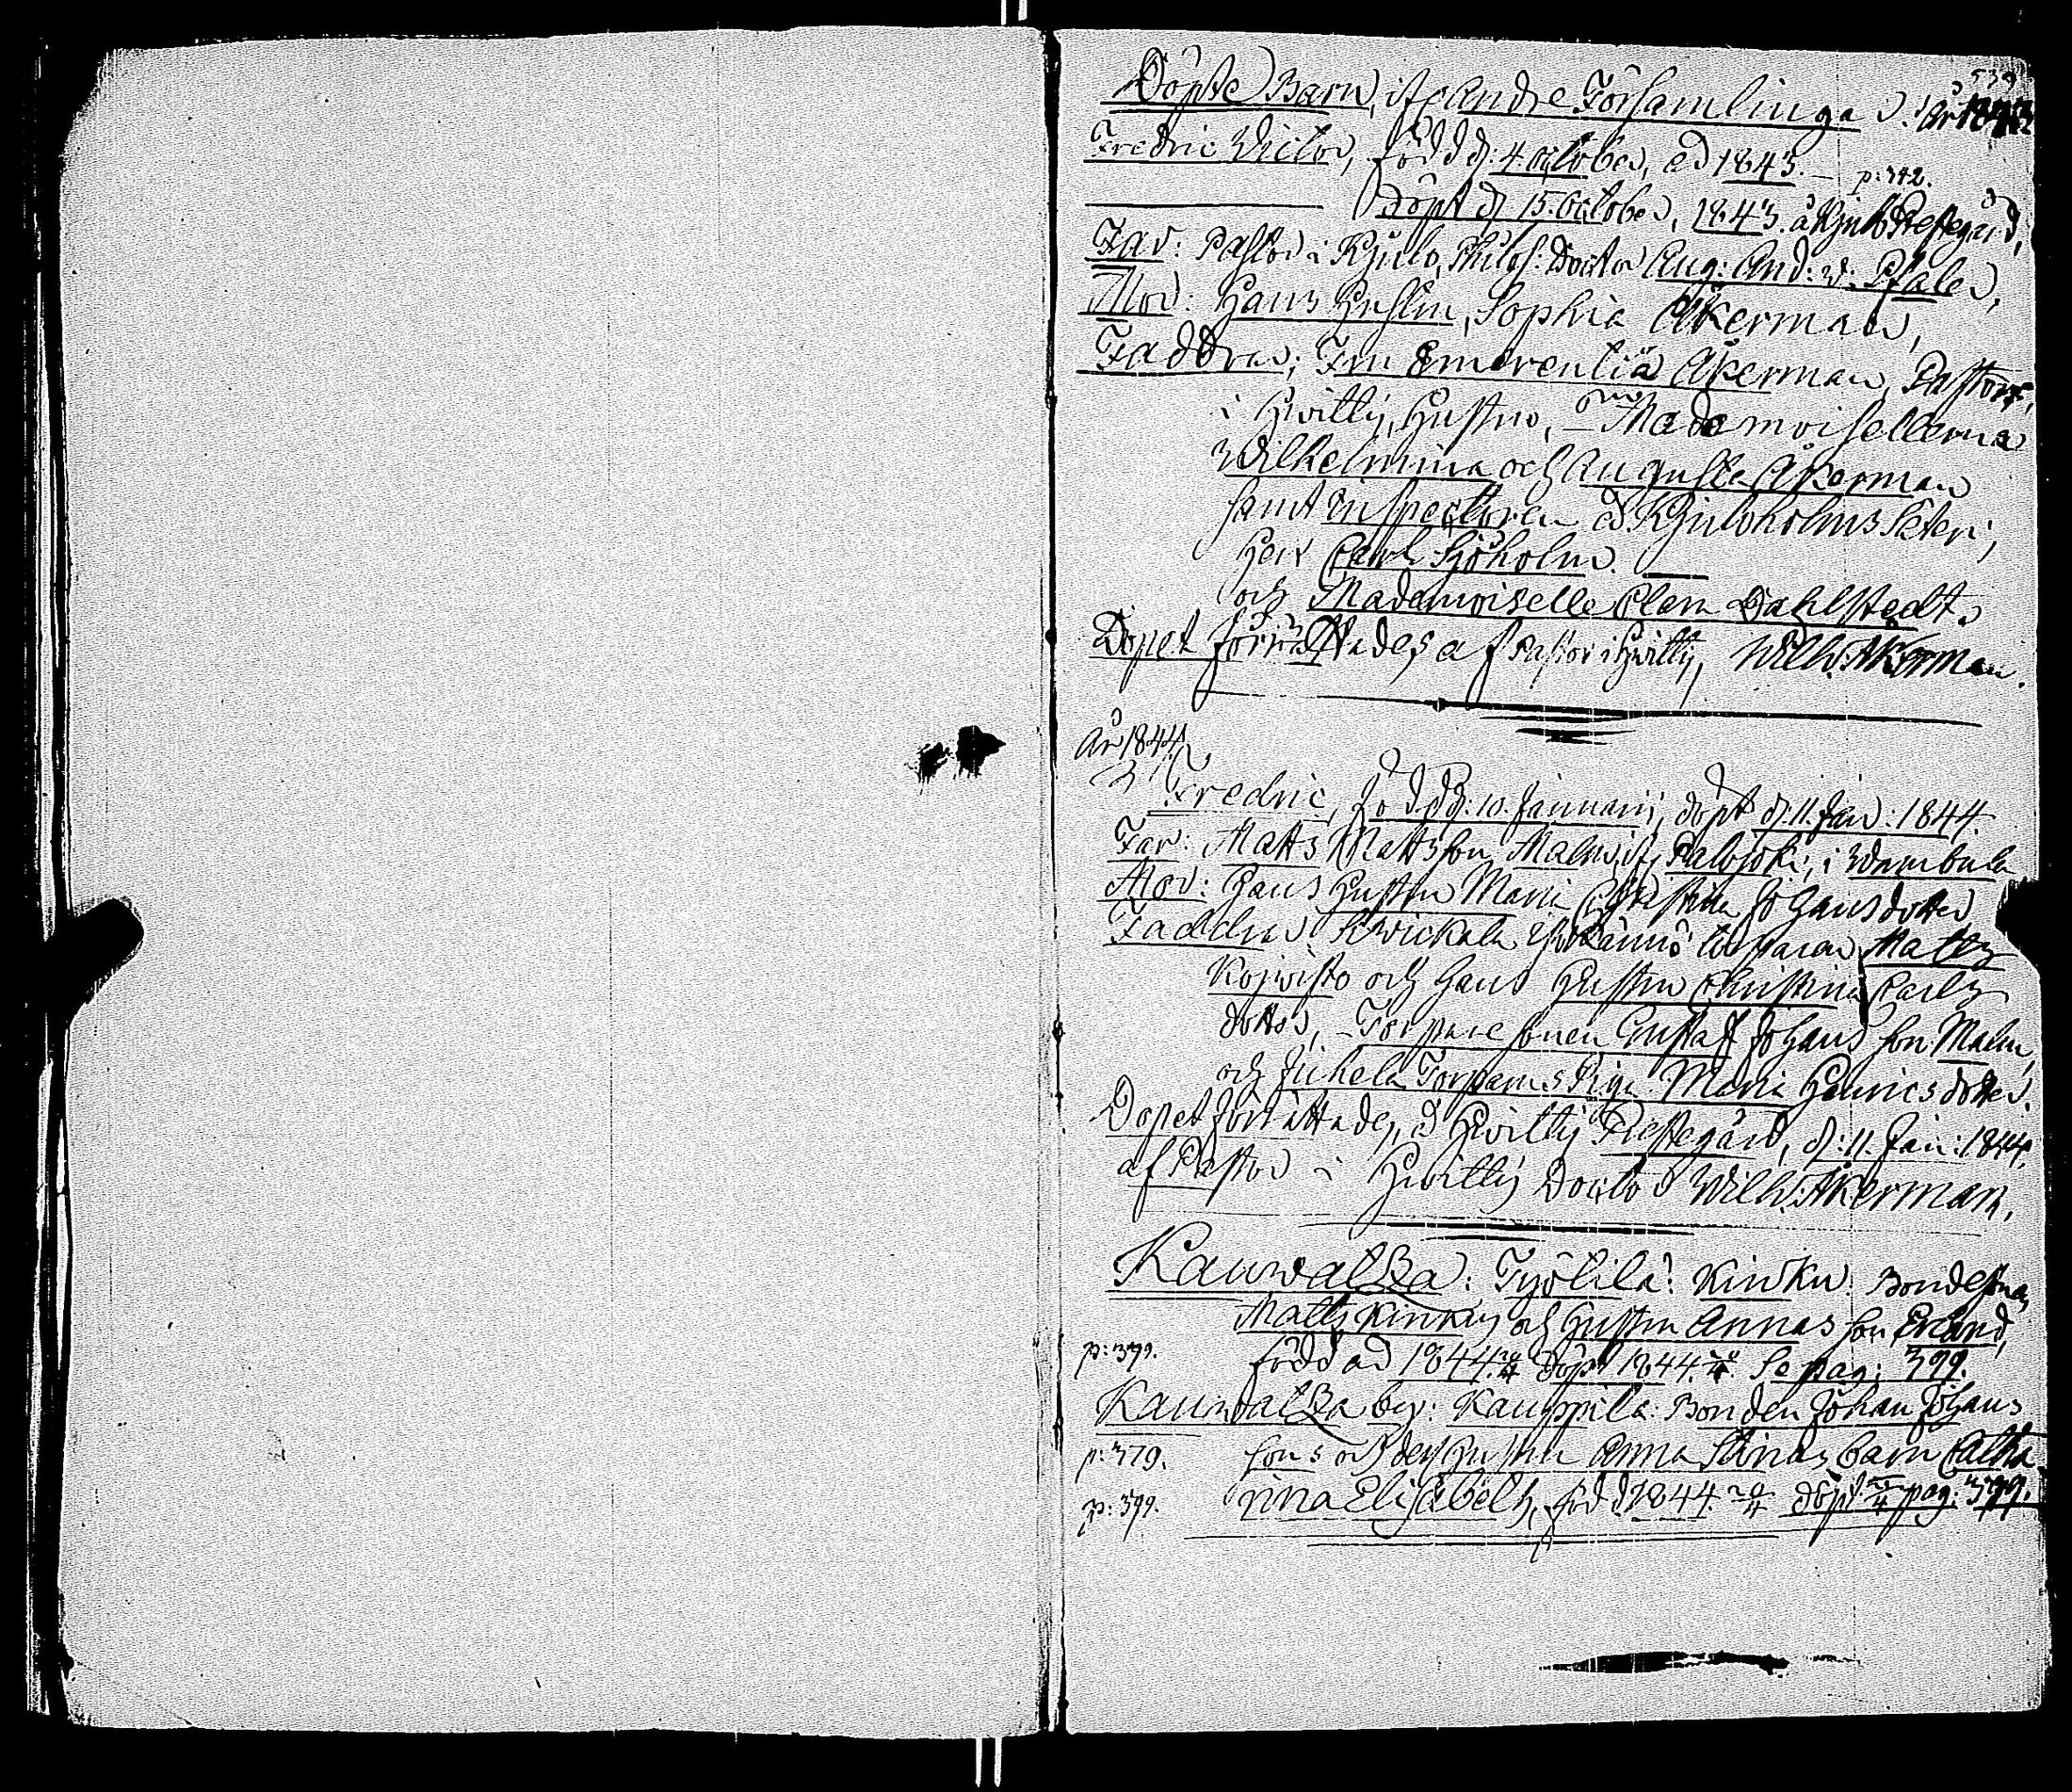 Döpte Barn, ifr. andre Församlingar. År 1843
Fredric Victor, född d: 4 october, ad 1843. — p: 342.
Döpt d 15. October, 1843. å Kjulo Prestegård,
Far: Pastor i Kjulo, Philos: Doctor Aug: And: v: Pfaler,
Mor: Hans Hustru, Sophia Åkerman,
Faddrar; Fru Emerentia Åkerman, Pastors,
i Hvittis, Hustru, — Mademoisellerna
Wilhelmina och Augusta Åkerman
samt Inspectoren å Kjuloholms Säteri,
Herr Carl Sjöholm. —
och Mademoiselle Clara Dahlstedt.
Dopet förrättades af Pastor i Hvittis, Wilh: Åkerman.
År 1844
Fredric, född d: 10. Januarii, döpt d. 11. Jan: 1844.
Far: Matts Mattsson Malm, ifr. Palojoki, i Wambula
Mor: Hans Hustru Maria Christina Johansdotter
Faddrar: torparen Matts
Kojvisto och Hans Hustru Christina Carls
dotter, — Torpare sonen Gustaf Johans son Malm,
och Torpares Piga Maria Henricsdotter.
Dopet förrättades, å Hvittis Prestegård, d: 11. Jan: 1844,
af Pastor i Hvittis Doctor Wilh: Åkerman.
Kauwatsa: Työtilä: Kinku: Bondesonas
Matts Kinkus och Hustru Annas son Erland,
p: 379. född ad 1844. döpt 1844. Se pag: 399.
Kauwatsa by: Kauppila: Bonden Johan Johans
p: 379. sons och dess Hustru Anna Stinas barn Catha
p: 399. rina Elisabeth, född 1844. döpt pag: 399.